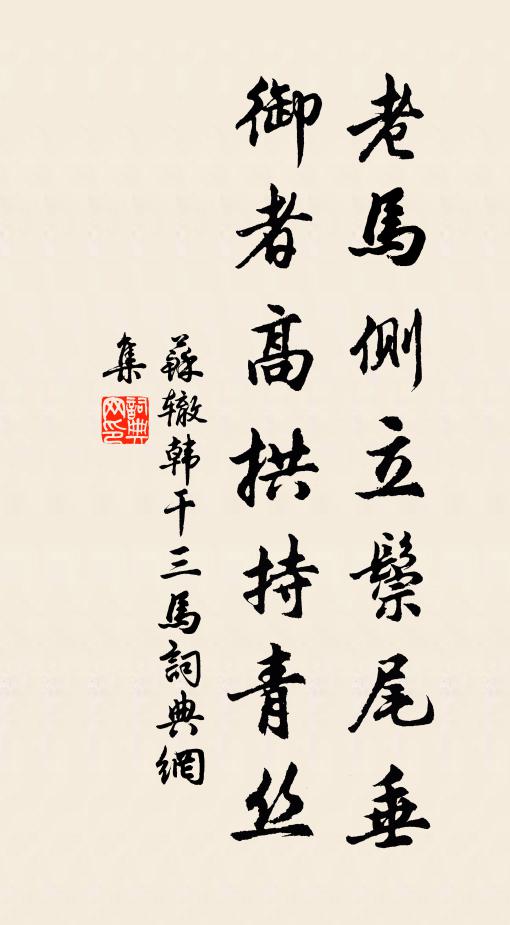 老馬側立鬃尾垂
御者高拱持青丝
蘇辙韩干三馬詞典網
集
詞典网印